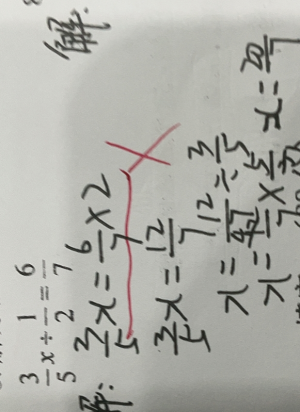 3/5 x ÷ 1/2 = 6/7
解: 3/5 x = 6/7 × 2
3/5 x = 12/7
x = 12/7 ÷ 3/5
x = 20/7
解: